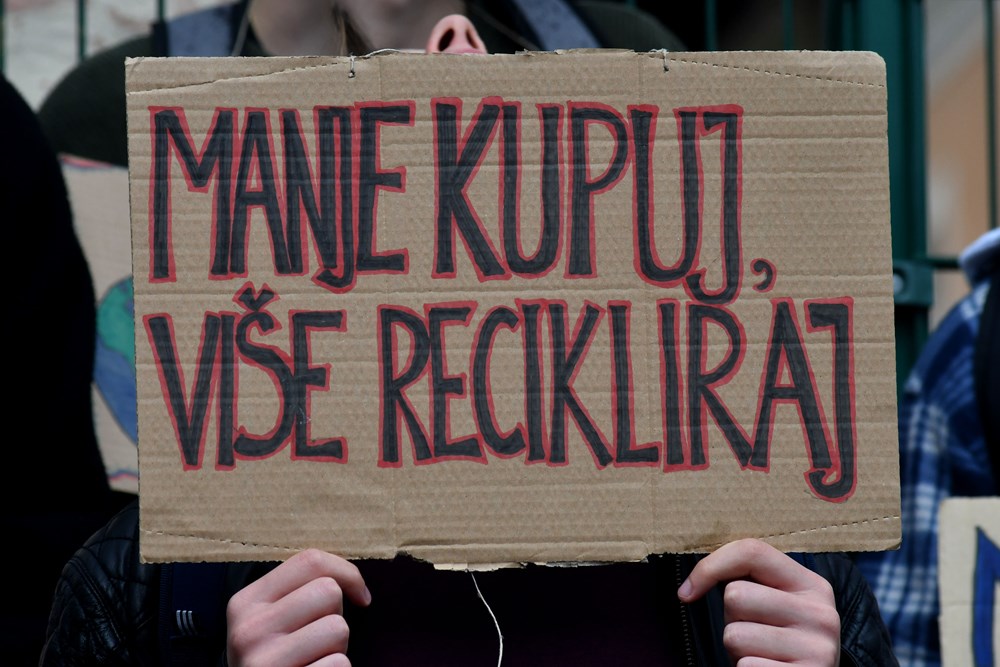 MANJE KUPUJ,
VIŠE RECIKLIRAJ